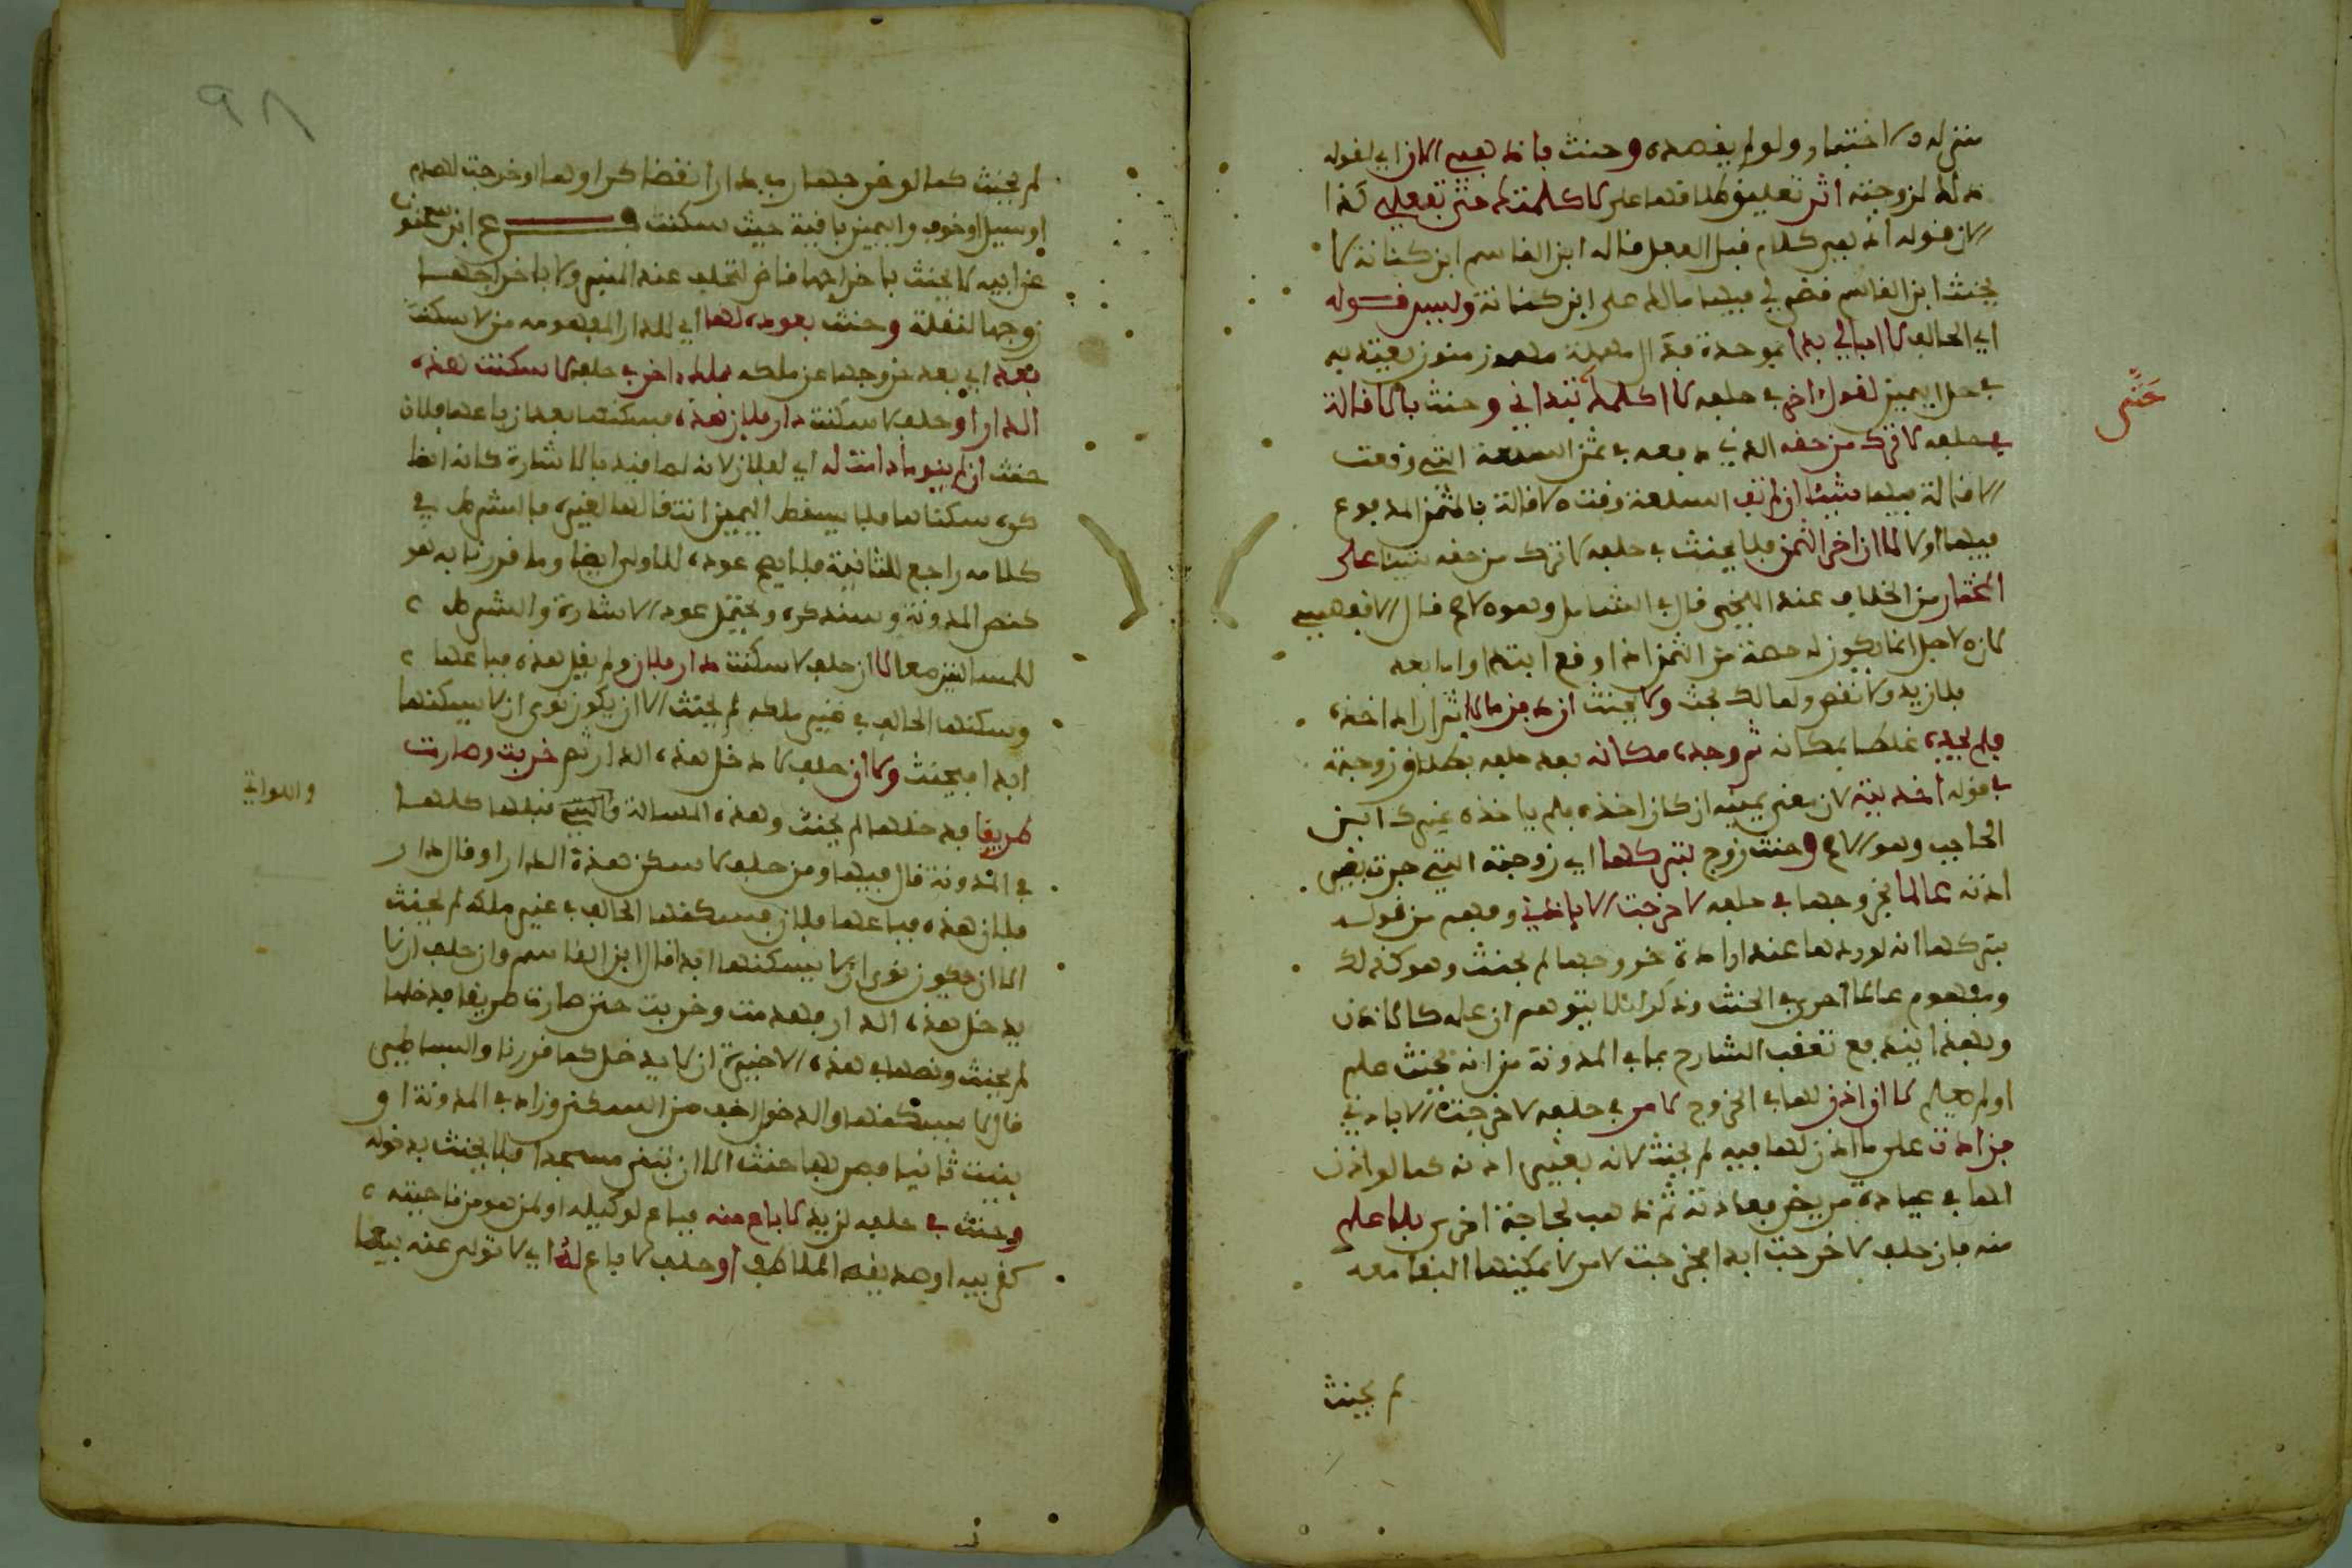 منزله لاختبار ولو لم يقصده وحنث باذهبي الان اي لقوله
ذلك لزوجته اثر تعليق طلاقها على لا كلمتك حتى تفعلي كذا
لان قوله اذهبي كلام قبل الفعل قاله ابن القاسم ابن كنانة لا
يحنث ابن القاسم قضي لي فيها مالك على ابن كنانة وليس قوله
اي الحالف لا ابالي بدءا بموحدة فدال مهملة مهموز منون يعتد به
في حل اليمين لقول اخر في حلفه لا اكلمك تبداني وحنث بالاقالة
في حلفه لا ترك من حقه الذي دفعه في ثمن السلعة التي وقعت
الاقالة فيها شيئا ان لم تف السلعة وقت الاقالة بالثمن المدفوع
فيها اولا لا ان اخر الثمن فلا يحنث في حلفه لا ترك من حقه شيئا على
المختار من الخلاف عند اللخمي قال في الشامل وهو الاصح قال الاقفهسي
لان الاجل انما يكون له حصة من الثمن اذا وقع ابتداء واما بعد
فلا زيد ولا نقص ولمالك يحنث ولا يحنث ان دفن مالا ثم اراد اخذه
فلم يجده غلطا بمكانه ثم وجده مكانه بعد حلفه بطلاق زوجته
في قوله اخذتيه لان معنى يمينه ان كان اخذه فلم ياخذه غيرك ابن
الحاجب وهو الاصح وحنث زوج بتركها اي زوجته التي خرجت بغير
اذنه عالما بخروجها في حلفه لا خرجت الا باذني وفهم من قوله
بتركها انه لو ردها عند ارادة خروجها لم يحنث وهو كذلك
ومفهوم عالما احرى في الحنث وذكر لئلا يتوهم ان علمه كالاذن
وبهذا يندفع تعقب الشارح بما في المدونة من انه يحنث علم
او لم يعلم لا ان اذن لها في الخروج لامر في حلفه لا خرجت الا باذني
فزادت على ما اذن لها فيه لم يحنث لانه بغير اذنه كما لو اذن
لها في عيادة مريض فعادته ثم تذهب لحاجة اخرى بلا علم
منه فان حلف لا خرجت ابدا فخرجت لامر لا يمكنها البقا معه
لم يحنث
حتى
لم يحنث كما لو خرجها رب الدار انقضا كرا وهما او خرجت لهدم
او سيل او خوف واليمين باقية حيث سكنت فرع ابن سحنون
عن ابيه لا يحنث باخراجها قاض لتحلف عند المنبر ولا باخراجها
زوجها لنقلة وحنث بعوده لها اي للدار المفهومة من لا سكنت
بعد اي بعد خروجها عن ملكه بملك اخر في حلفه لا سكنت هذه
الدار او حلف لا سكنت دار فلان هذه فسكنها بعد ان باعها فلان
حنث ان لم ينو ما دامت له اي لفلان لانه لما قيد بالاشارة كانه انما
كره سكناها فلا يسقط اليمين انتقالها لغيره فالشرط في
كلامه راجع للثانية فلا يصح عوده للاولى ايضا وما قررنا به هو
كنص المدونة وسنذكره ويحتمل عود الاشارة والشرط
للمسالتين معا لا ان حلف لا سكنت دار فلان ولم يقل هذه فباعها
وسكنها الحالف في غير ملكه لم يحنث الا ان يكون نوى ان لا يسكنها
ابدا فيحنث ولا ان حلف لا دخل هذه الدار ثم خربت وصارت
طريقا فدخلها لم يحنث وهذه المسالة والتي قبلها كلها
في المدونة قال فيها ومن حلف لا سكن هذه الدار او قال دار
فلان هذه فباعها فلان فسكنها الحالف في غير ملكه لم يحنث
الا ان يكون نوى ان لا يسكنها ابدا قال ابن القاسم وان حلف ان لا
يدخل هذه الدار فهدمت وخربت حتى صارت طريقا فدخلها
لم يحنث ونصها في هذه الاخيرة ان لا يدخل كما قررنا والبساطي
قال لا يسكنها والدخول اخف من السكنى وزاد في المدونة او
بنيت ثانيا فمر بها حنث الا ان تبنى مسجدا فلا يحنث بدخوله
وحنث في حلفه لزيد لا باع منه فباع لوكيله او لمن هو من ناحيته
كقريبه او صديقه الملاطف او حلف لا باع له اي لا تولى عنه بيعا
واللواتي
٩٨